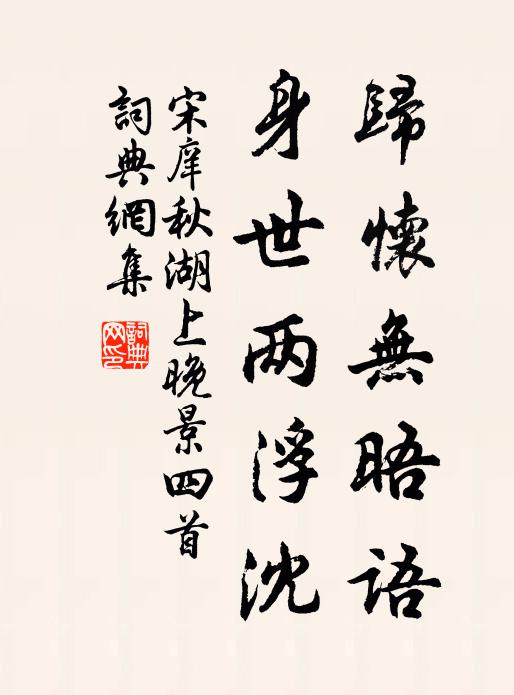 歸懷無晤語
身世两浮沈
宋庠秋湖上晚景四首
詞典網集
詞典网印